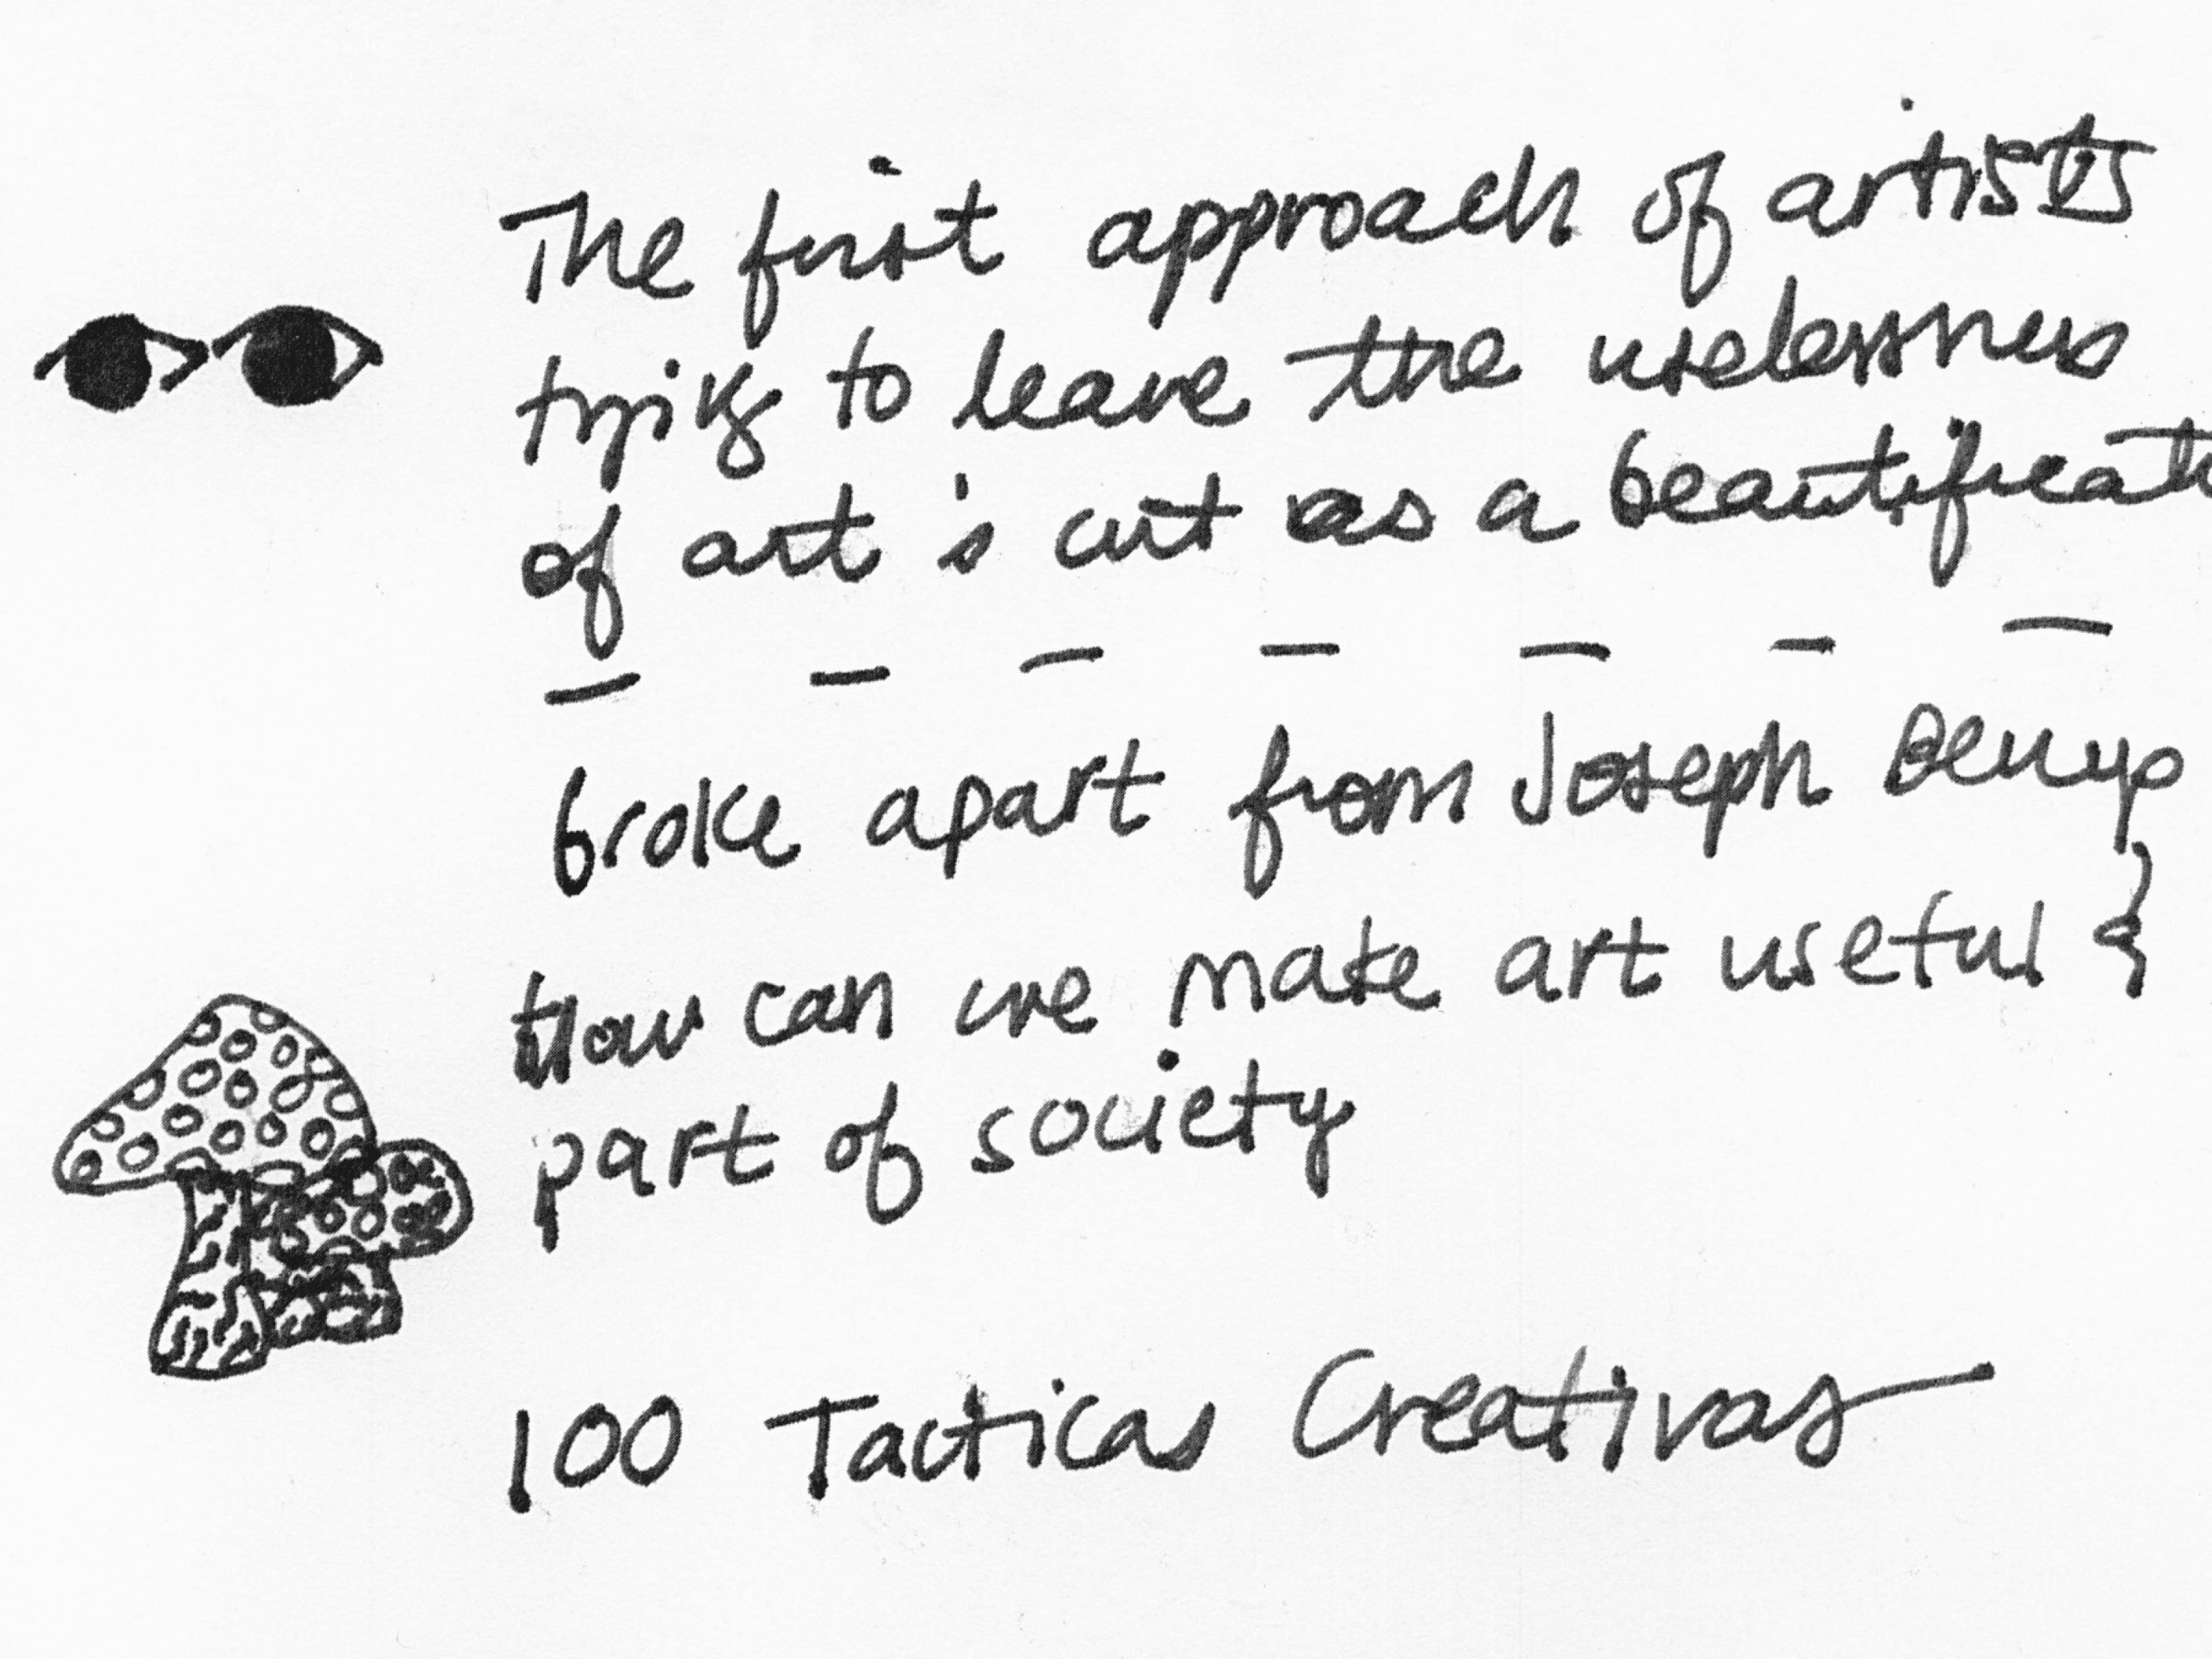 The first approach of artists
trying to leave the uselessness
of art is cut as a beautificati
broke apart from Joseph Beuys
How can we make art useful &
part of society
100 Tacticas Creativas